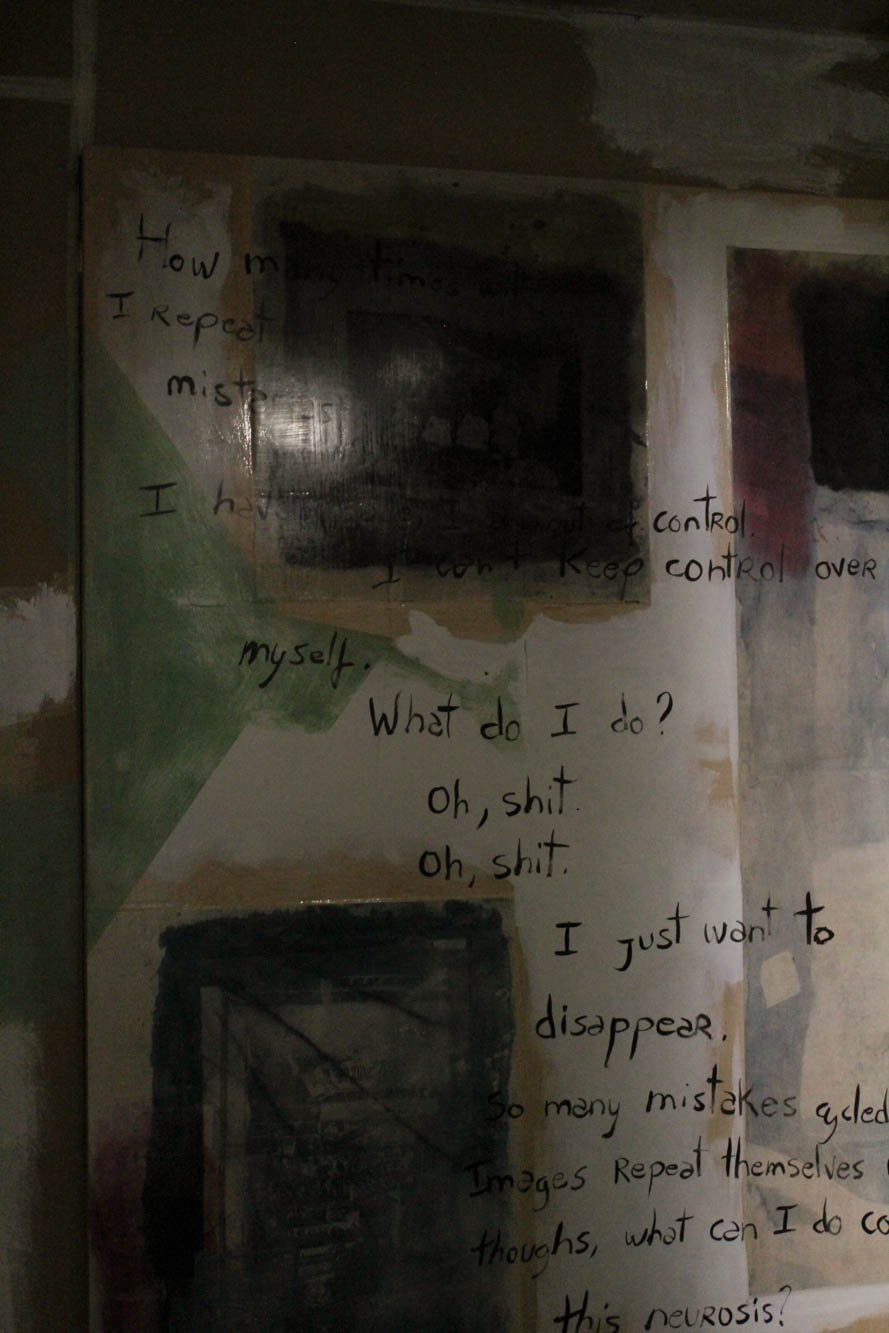 How many times will
I Repeat
mistakes
I have I am out of control.
I can't keep control over
myself.
What do I do?
Oh, shit.
Oh, shit.
I just want to
disappear.
So many mistakes cycled
Images Repeat themselves
thoughs, what can I do co
this neurosis?